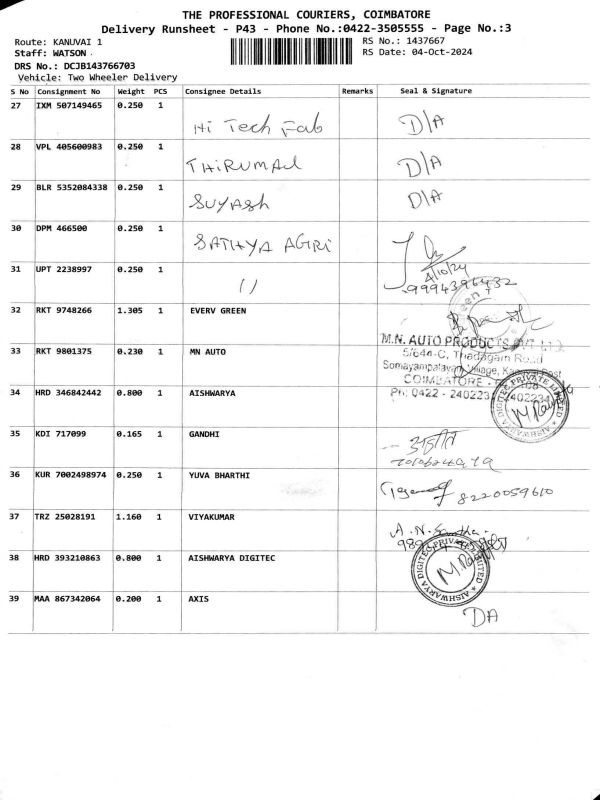 THE PROFESSIONAL COURIERS, COIMBATORE
Delivery Runsheet - P43 - Phone No.:0422-3505555 - Page No.:3
Route: KANUVAI 1 RS No.: 1437667
Staff: WATSON RS Date: 04-Oct-2024
DRS No.: DCJB143766703
Vehicle: Two Wheeler Delivery
S No Consignment No Weight PCS Consignee Details Remarks Seal & Signature
27 IXM 507149465 0.250 1 Hi Tech Fab D/A
28 VPL 405600983 0.250 1 THIRUMAL D/A
29 BLR 5352084338 0.250 1 SUYASh D/A
30 DPM 466500 0.250 1 SATHYA AGRI
4/10/24
31 UPT 2238997 0.250 1 11 9994396432
32 RKT 9748266 1.305 1 EVERV GREEN
33 RKT 9801375 0.230 1 MN AUTO
M.N. AUTO PRODUCTS PVT LTD.
5/644-C, Thadagam Road
Somayampalayam Village, Post
COIMBATORE
Ph: 0422 -
34 HRD 346842442 0.800 1 AISHWARYA
AISHWARYA DIGITEC PRIVATE LIMITED
35 KDI 717099 0.165 1 GANDHI
36 KUR 7002498974 0.250 1 YUVA BHARTHI 8220059610
37 TRZ 25028191 1.160 1 VIYAKUMAR
38 HRD 393210863 0.800 1 AISHWARYA DIGITEC
AISHWARYA DIGITEC PRIVATE LIMITED
39 MAA 867342064 0.200 1 AXIS DA